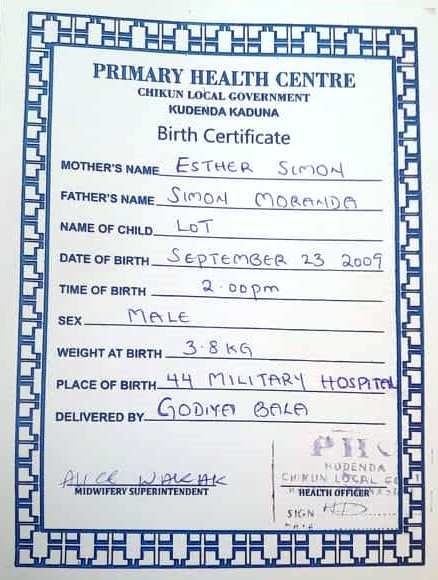 PRIMARY HEALTH CENTRE
CHIKUN LOCAL GOVERNMENT
KUDENDA KADUNA
Birth Certificate
MOTHER'S NAME ESTHER SIMON
FATHER'S NAME SIMON MORANDA
NAME OF CHILD LOT
DATE OF BIRTH SEPTEMBER 23 2009
TIME OF BIRTH 2.00pm
SEX MALE
WEIGHT AT BIRTH 3.8KG
PLACE OF BIRTH 44 MILITARY HOSPITAL
DELIVERED BY GODIYA BALA
PHC
KUDENDA
CHIKUN LOCAL
ALICE
MIDWIFERY SUPERINTENDENT
HEALTH OFFICER
SIGN